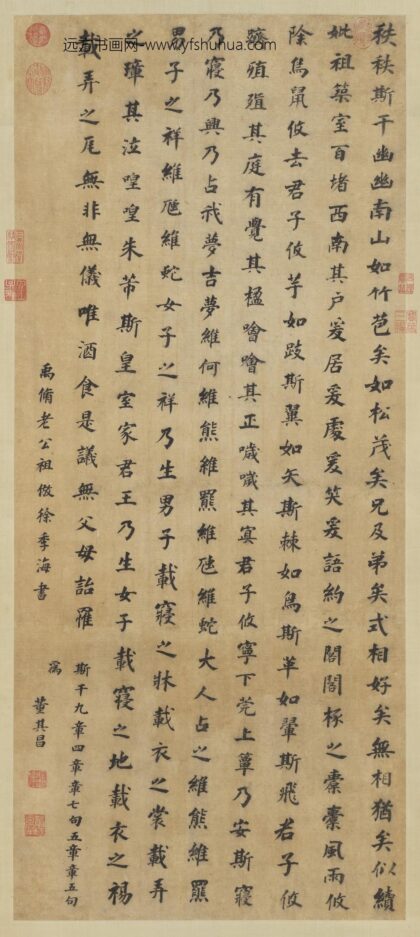 远方书画网 www.yfshuhua.com
秩秩斯干幽幽南山如竹苞矣如松茂矣兄及弟矣式相好矣無相猶矣似續
妣祖築室百堵西南其户爰居爰處爰笑爰語約之閣閣椓之橐橐風雨攸
除鳥鼠攸去君子攸芋如跂斯翼如矢斯棘如鳥斯革如翬斯飛君子攸
躋殖殖其庭有覺其楹噲噲其正噦噦其冥君子攸寧下莞上簟乃安斯寢
乃寢乃興乃占我夢吉夢維何維熊維羆維虺維蛇大人占之維熊維羆
男子之祥維虺維蛇女子之祥乃生男子載寢之牀載衣之裳載弄
之璋其泣喤喤朱芾斯皇室家君王乃生女子載寢之地載衣之裼
載弄之瓦無非無儀唯酒食是議無父母詒罹
斯干九章四章章七句五章章五句
為
禹脩老公祖倣徐季海書
董其昌